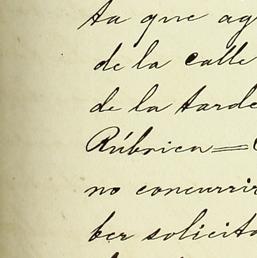 ta que ag
de la calle
de la tarde
Rúbrica=
no concurrir
ber solicito